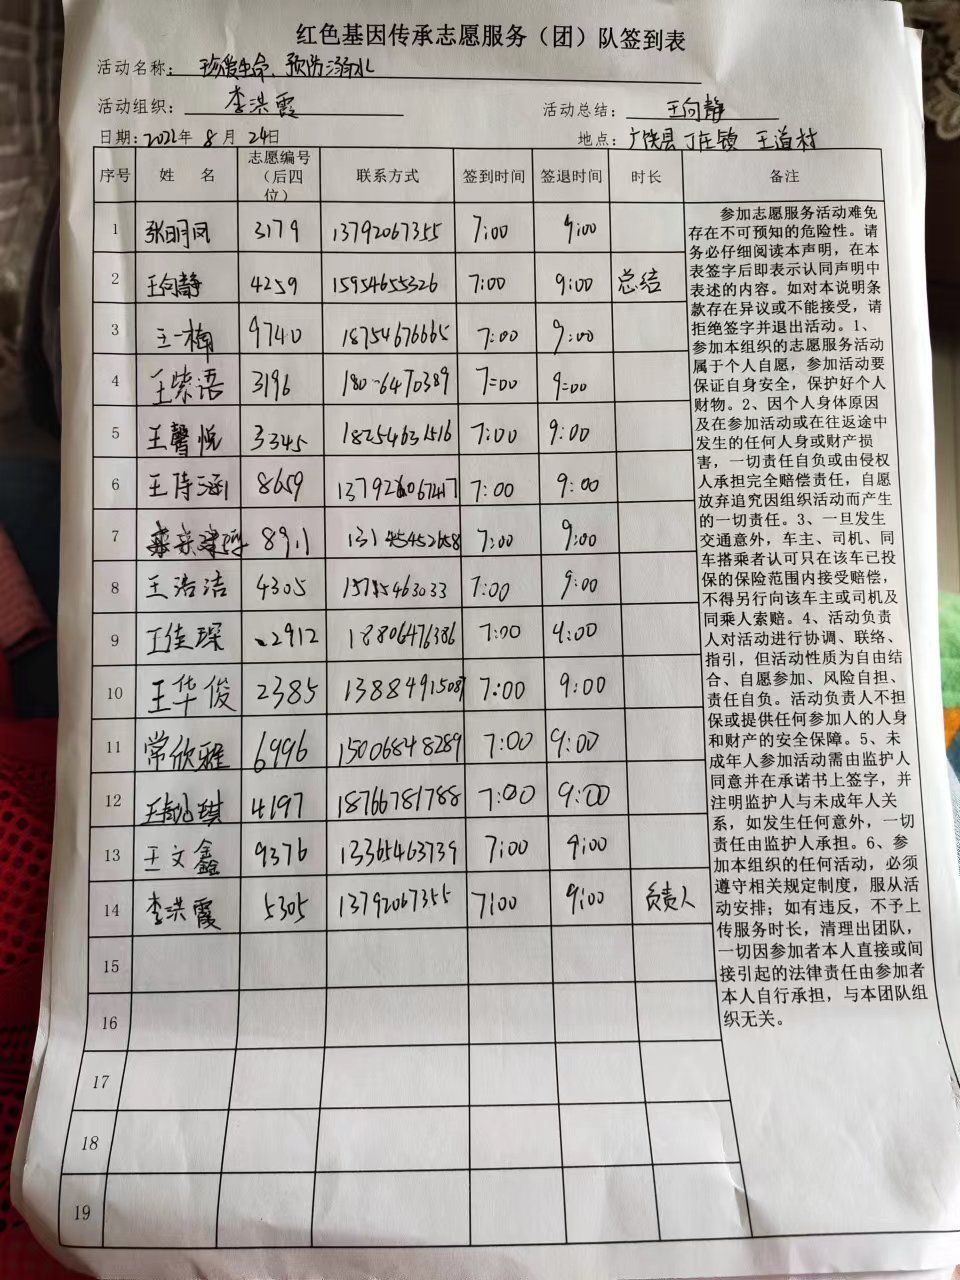 红色基因传承志愿服务（团）队签到表
活动名称：珍爱生命、预防溺水
活动组织：李洪霞 活动总结：王向静
日期：2022年 8月 24日 地点：广饶县丁庄镇 王道村
序号 姓 名 志愿编号（后四位） 联系方式 签到时间 签退时间 时长 备注
1 张明凤 3179 13792067355 7:00 9:00
2 王向静 4259 15954655326 7:00 9:00 总结
3 王一楠 9740 18754676665 7:00 9:00
4 王紫语 3196 6470389 7:00 9:00
5 王馨悦 3345 18254631516 7:00 9:00
6 王诗涵 8659 7:00 9:00
7 8911 7:00 9:00
8 王浩洁 4305 15785463033 7:00 9:00
9 王佳琛 2912 18806476386 7:00 9:00
10 王华俊 2385 13884915087 7:00 9:00
11 常欣雅 6996 15006848289 7:00 9:00
12 4197 18766781788 7:00 9:00
13 王文鑫 9376 13365463739 7:00 9:00
14 李洪霞 5305 13792067355 7:00 9:00 负责人
15
16
17
18
19
参加志愿服务活动难免
存在不可预知的危险性。请
务必仔细阅读本声明，在本
表签字后即表示认同声明中
表述的内容。如对本说明条
款存在异议或不能接受，请
拒绝签字并退出活动。1、
参加本组织的志愿服务活动
属于个人自愿，参加活动要
保证自身安全，保护好个人
财物。2、因个人身体原因
及在参加活动或在往返途中
发生的任何人身或财产损
害，一切责任自负或由侵权
人承担完全赔偿责任，自愿
放弃追究因组织活动而产生
的一切责任。3、一旦发生
交通意外，车主、司机、同
车搭乘者认可只在该车已投
保的保险范围内接受赔偿，
不得另行向该车主或司机及
同乘人索赔。4、活动负责
人对活动进行协调、联络、
指引，但活动性质为自由结
合、自愿参加、风险自担、
责任自负。活动负责人不担
保或提供任何参加人的人身
和财产的安全保障。5、未
成年人参加活动需由监护人
同意并在承诺书上签字，并
注明监护人与未成年人关
系，如发生任何意外，一切
责任由监护人承担。6、参
加本组织的任何活动，必须
遵守相关规定制度，服从活
动安排；如有违反，不予上
传服务时长，清理出团队，
一切因参加者本人直接或间
接引起的法律责任由参加者
本人自行承担，与本团队组
织无关。